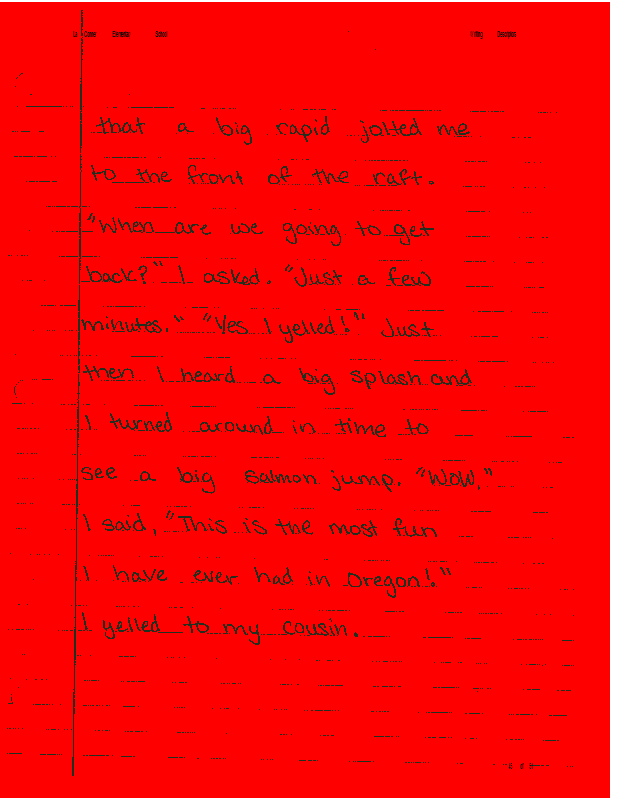 that a big rapid jolled me
to the front of the raft.
"When are we going to get
back?" I asked. "Just a few
minutes." "Yes I yelled!" Just
then I heard a big splash and
I turned around in time to
see a big salmon jump. "Wow."
I said, "This is the most fun
I have ever had in Oregon!"
I yelled to my cousin.